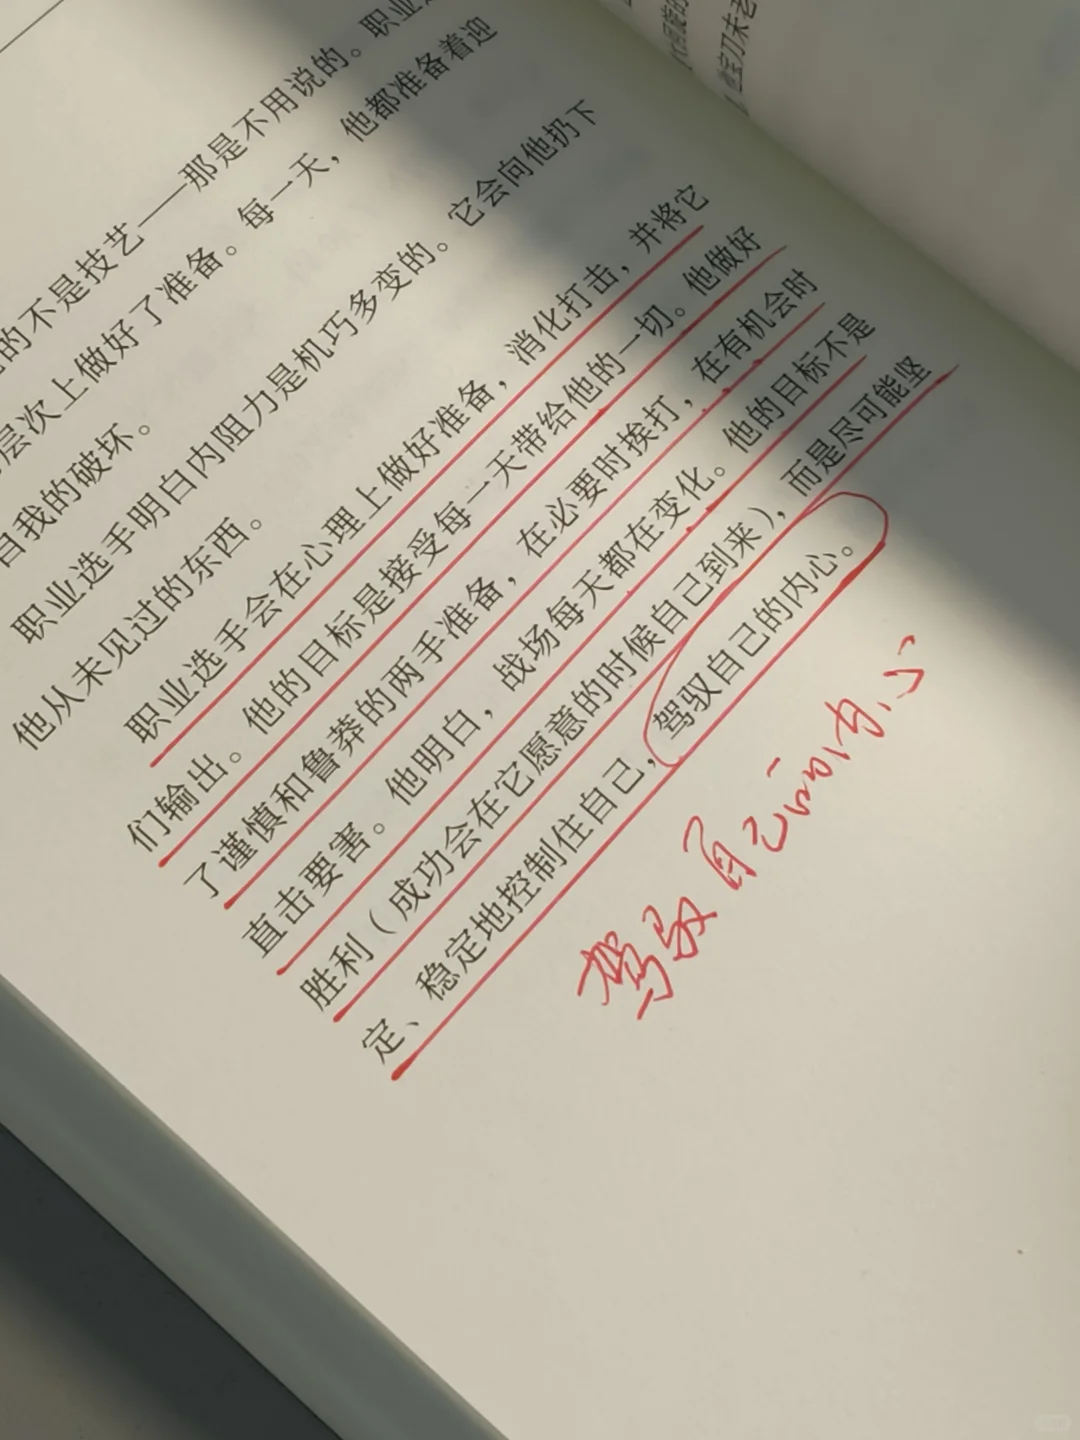 的不是技艺——那是不用说的。职业
层次上做好了准备。每一天，他都准备着迎
自我的破坏。
职业选手明白内阻力是机巧多变的。它会向他扔下
他从未见过的东西。
职业选手会在心理上做好准备，消化打击，并将它
们输出。他的目标是接受每一天带给他的一切。他做好
了谨慎和鲁莽的两手准备，在必要时挨打，在有机会时
直击要害。他明白，战场每天都在变化。他的目标不是
胜利（成功会在它愿意的时候自己到来），而是尽可能坚
定、稳定地控制住自己，驾驭自己的内心。
驾驭自己的内心